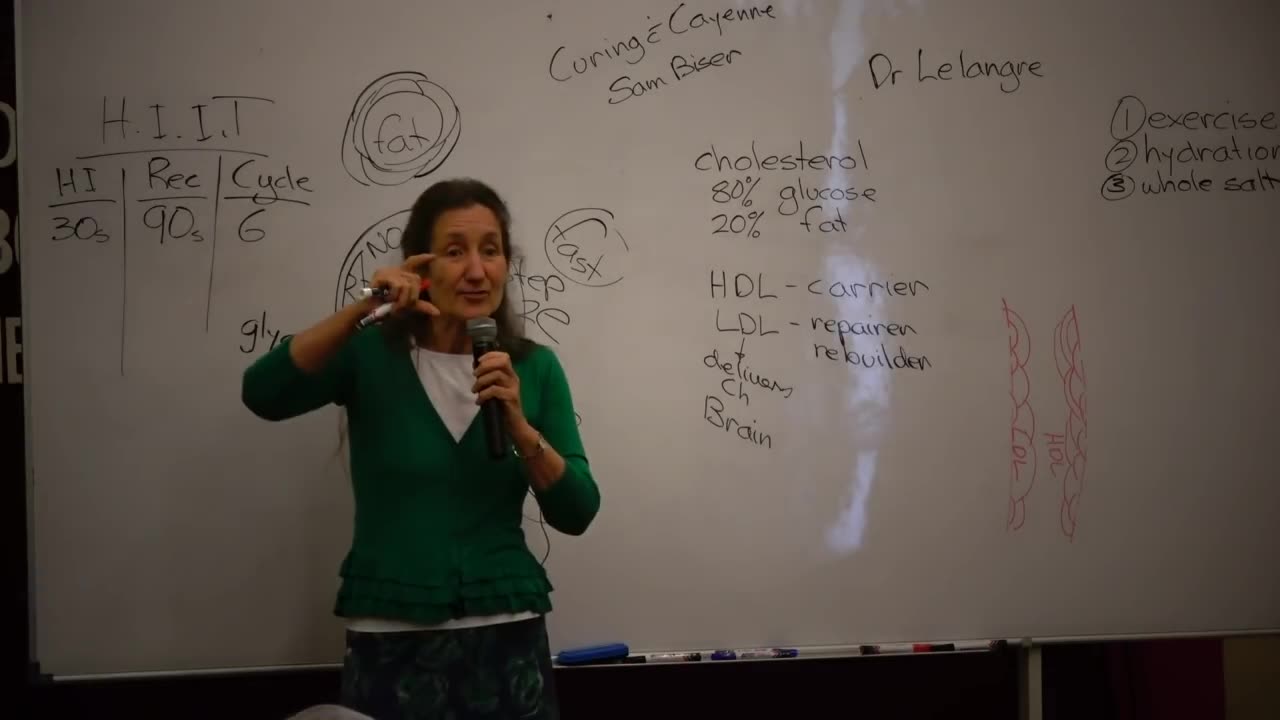 Curing č Cayenne
Sam Biser
Dr Lelangre
H.I.I.T
HI Rec Cycle
30s 90s 6
fat
fast
cholesterol
80% glucose
20% fat
HDL - carrier
LDL - repairer
rebuilder
delivers
Ch
Brain
① exercise
② hydration
③ whole salt
LDL
HDL